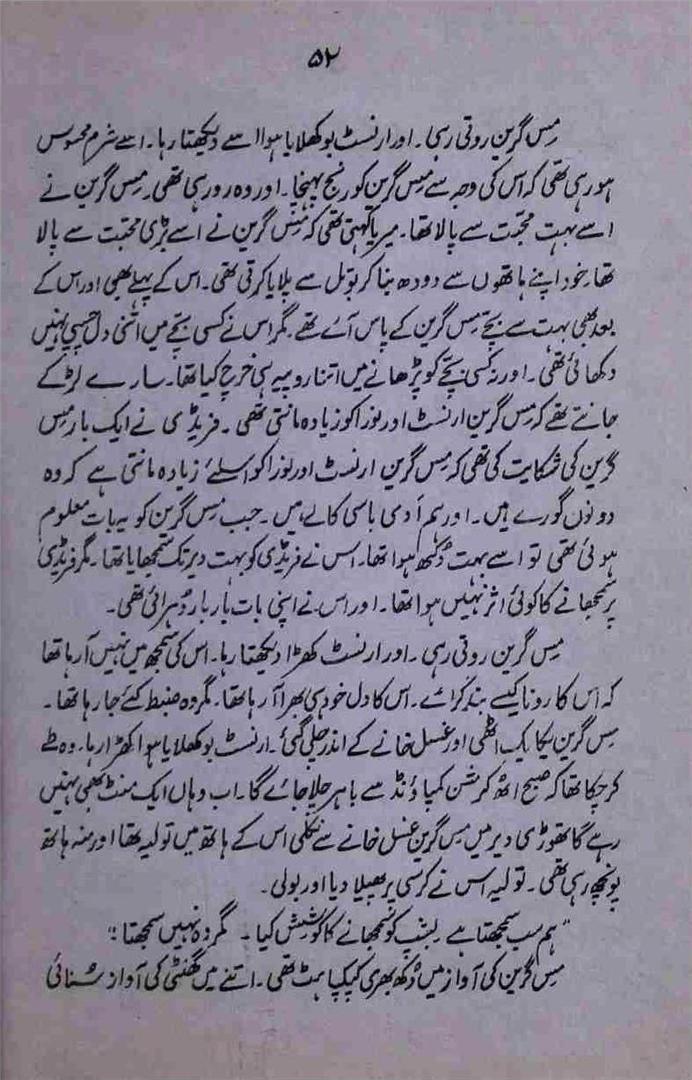 ۵۲
مس گرین روتی رہی۔ اور ارنسٹ بوکھلایا ہوا اسے دیکھتا رہا۔ اسے شرم محسوس
ہو رہی تھی کہ اس کی وجہ سے مس گرین کو رنج پہنچا۔ اور وہ رو رہی تھی۔ مس گرین نے
اسے بہت محبت سے پالا تھا۔ میریا کہتی تھی کہ مس گرین نے اسے بڑی محبت سے پالا
تھا۔ خود اپنے ہاتھوں سے دودھ بنا کر بوتل سے پلایا کرتی تھی۔ اس کے پہلے بھی اور اس کے
بعد بھی بہت سے بچے مس گرین کے پاس آئے تھے۔ مگر اس نے کسی بچے میں اتنی دل چسپی نہیں
دکھائی تھی۔ اور نہ کسی بچے کو پڑھانے میں اتنا روپیہ ہی خرچ کیا تھا۔ سارے لڑکے
جانتے تھے کہ مس گرین ارنسٹ اور نورا کو زیادہ مانتی تھی۔ فریڈی نے ایک بار مس
گرین کی شکایت کی تھی کہ مس گرین ارنسٹ اور نورا کو اسلئے زیادہ مانتی ہے کہ وہ
دونوں گورے ہیں۔ اور ہم آدی باسی کالے ہیں۔ جب مس گرین کو یہ بات معلوم
ہوئی تھی تو اسے بہت دُکھ ہوا تھا۔ اس نے فریڈی کو بہت دیر تک سمجھایا تھا۔ مگر فریڈی
پر سمجھانے کا کوئی اثر نہیں ہوا تھا۔ اور اس نے اپنی بات بار بار دُہرائی تھی۔
مس گرین روتی رہی۔ اور ارنسٹ کھڑا دیکھتا رہا۔ اس کی سمجھ میں نہیں آ رہا تھا
کہ اس کا رونا کیسے بند کرائے۔ اس کا دل خود ہی بھرا آ رہا تھا۔ مگر وہ ضبط کئے جا رہا تھا۔
مس گرین یکایک اٹھی اور غسل خانے کے اندر چلی گئی۔ ارنسٹ بوکھلایا ہوا کھڑا رہا۔ وہ طے
کر چکا تھا کہ صبح اٹھ کر مشن کمپاؤنڈ سے باہر چلا جائے گا۔ اب وہاں ایک منٹ بھی نہیں
رہے گا تھوڑی دیر میں مس گرین غسل خانے سے نکلی اس کے ہاتھ میں تولیہ تھا اور منہ ہاتھ
پونچھ رہی تھی۔ تولیہ اس نے کرسی پر پھیلا دیا اور بولی۔
"ہم سب سمجھتا ہے۔ بشپ کو سمجھانے کا کوشش کیا۔ مگر وہ نہیں سمجھتا"۔
مس گرین کی آواز میں دُکھ بھری کپکپاہٹ تھی۔ اتنے میں گھنٹی کی آواز سُنائی